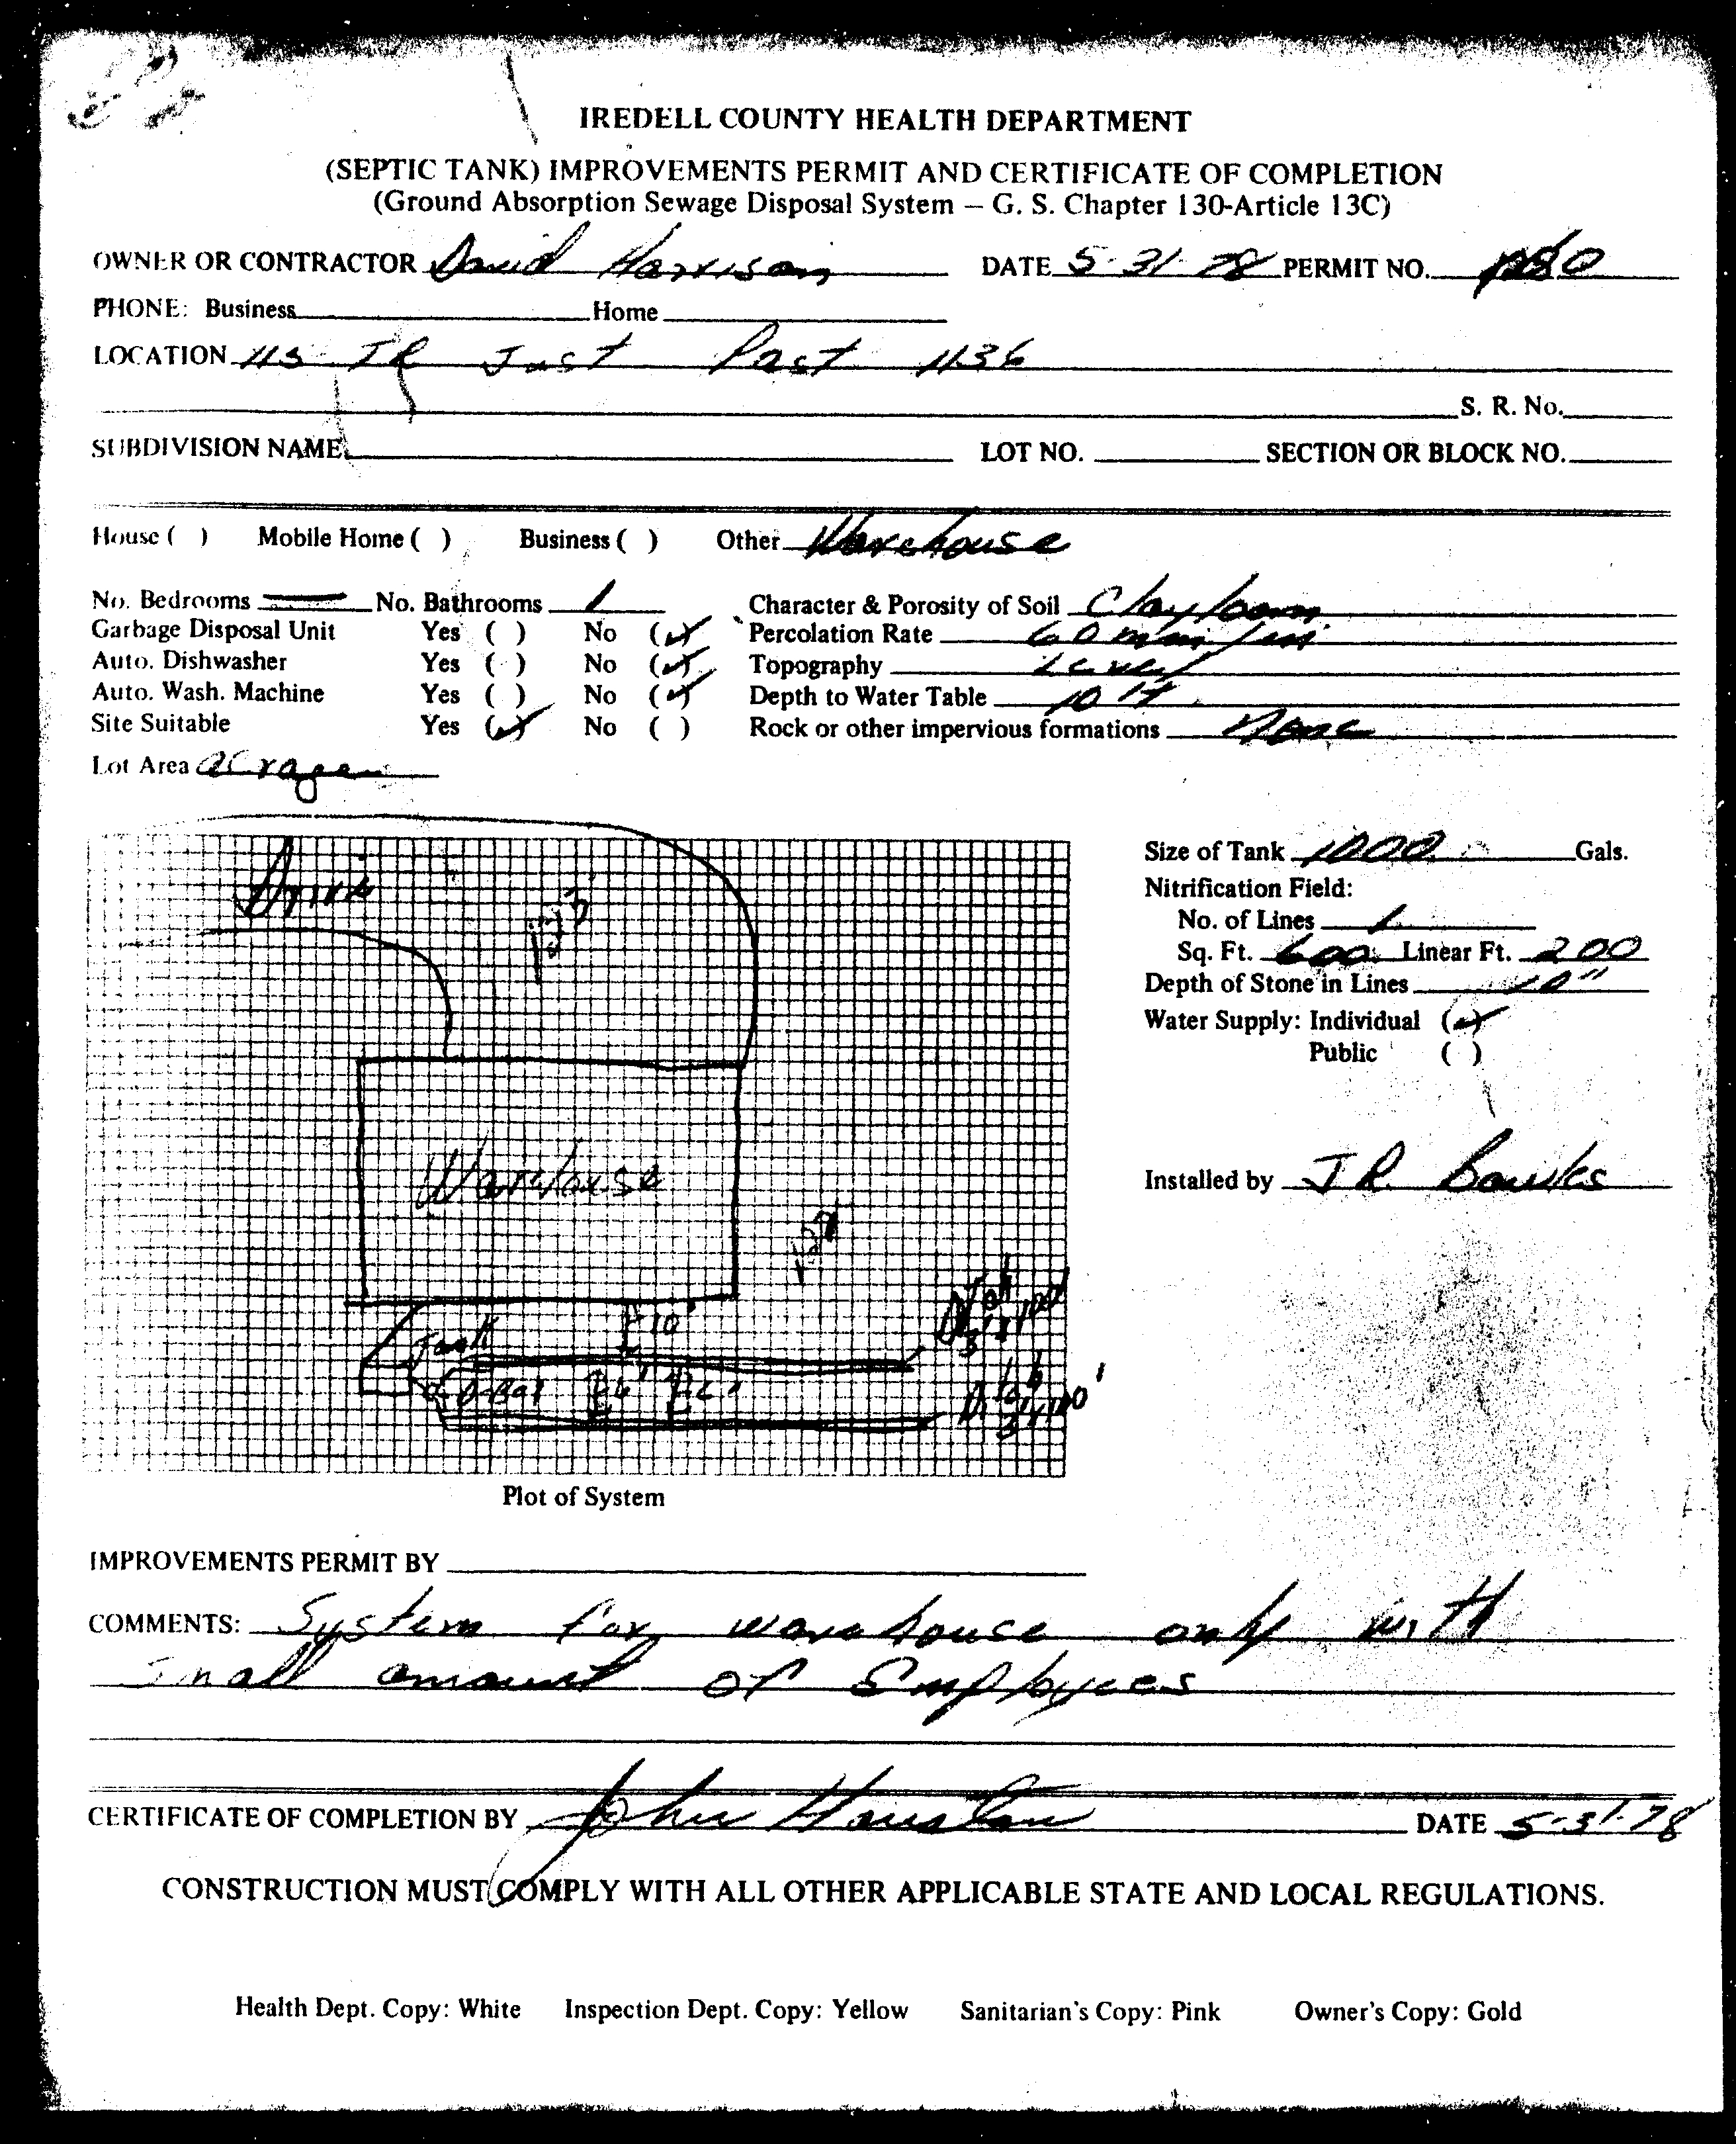 IREDELL COUNTY HEALTH DEPARTMENT
(SEPTIC TANK) IMPROVEMENTS PERMIT AND CERTIFICATE OF COMPLETION
(Ground Absorption Sewage Disposal System — G. S. Chapter 130-Article 13C)
OWNER OR CONTRACTOR David Harrison DATE 5-31-78 PERMIT NO.
PHONE: Business Home
LOCATION Just Past 1136
S. R. No.
SUBDIVISION NAME LOT NO. SECTION OR BLOCK NO.
House ( ) Mobile Home ( ) Business ( ) Other Warehouse
No. Bedrooms — No. Bathrooms 1 Character & Porosity of Soil Clay loam
Garbage Disposal Unit Yes ( ) No (✓) Percolation Rate 60 min/in
Auto. Dishwasher Yes ( ) No (✓) Topography Level
Auto. Wash. Machine Yes ( ) No (✓) Depth to Water Table 10 ft.
Site Suitable Yes (✓) No ( ) Rock or other impervious formations None
Lot Area acrage
Drive
Warehouse
10'
Tank
D-Box 6'
3'x100'
3'x100'
Plot of System
Size of Tank 1000 Gals.
Nitrification Field:
No. of Lines
Sq. Ft. 600 Linear Ft. 200
Depth of Stone in Lines 10"
Water Supply: Individual (✓)
Public ( )
Installed by J R.
IMPROVEMENTS PERMIT BY
COMMENTS: System for warehouse only with
Small amount of Employees
CERTIFICATE OF COMPLETION BY John Houston DATE 5-31-78
CONSTRUCTION MUST COMPLY WITH ALL OTHER APPLICABLE STATE AND LOCAL REGULATIONS.
Health Dept. Copy: White Inspection Dept. Copy: Yellow Sanitarian's Copy: Pink Owner's Copy: Gold